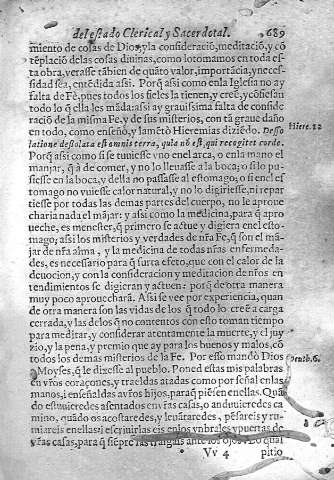 del estado Clerical y Sacerdotal. 689
miento de cosas de Dios, y la consideració, meditació, y cõ
tẽplació delas cosas diuinas, como lo tomamos en toda es
ta obra, verasse tãbien de quãto valor, importãcia, y neces-
sidad sea, entẽdida assi. Porq̃ assi como enla Iglesia no ay
falta de Fè, pues todos los fieles la tienen, y creẽ, y cõfiessan
todo lo q̃ ella les mãda: assi ay grauissima falta de conside
ració de la misma Fe, y de sus misterios, con tã graue daño
en todo, como enseñó, y lamẽtó Hieremias diziẽdo. Deso
latione desolata est omnis terra, quia nõ est, qui recogitet corde.
Hiere. 12
Porq̃ assi como si se tuuiesse vno enel arca, o enla mano el
manjar, q̃ à de comer, y no lo lleuasse à la boca; o si lo pu-
siesse en la boca, y della no passasse al estomago, o si enel es
tomago no vuiesse calor natural, y no lo digiriesse, ni repar
tiesse por todas las demas partes del cuerpo, no le aproue
charia nada el mãjar: y assi como la medicina, para q̃ apro
ueche, es menester, q̃ primero se actue y digiera enel esto-
mago; assi los misterios y verdades de nr̃a Fe, q̃ son el mã-
jar de nr̃a alma, y la medicina de todas nr̃as enfermeda-
des, es necessario para q̃ surta efeto, que con el calor de la
deuocion, y con la consideracion y meditacion de nr̃os en
tendimientos se digieran y actuen: porq̃ de otra manera
muy poco aprouecharã. Assi se vee por experiencia, quan
de otra manera son las vidas de los q̃ todo lo creẽ a carga
cerrada, y las delos q̃ no contentos con esto toman tiempo
para meditar, y considerar atentamente la muerte, y el juy
zio, y la pena, y premio que ay para los buenos y malos, cõ
todos los demas misterios de la Fe. Por esso mandó Dios
Deuth. 6.
a Moyses, que le dixesse al pueblo. Poned estas mis palabras
en vr̃os coraçones, y traeldas atadas como por señal enlas
manos, i enseñaldas avr̃os hijos, paraq̃ piẽsen enellas. Quã
do estuuieredes assentados envr̃as casas, o anduuieredes ca
mino, quãdo os acostaredes, y leuãtaredes, pẽsareis y ru-
miareis enellas: i escriuirlas eis enlos vnbrales ypuertas de
vr̃as casas, para q̃ siẽpre las traigais ante los ojos
Vv 4 pitio